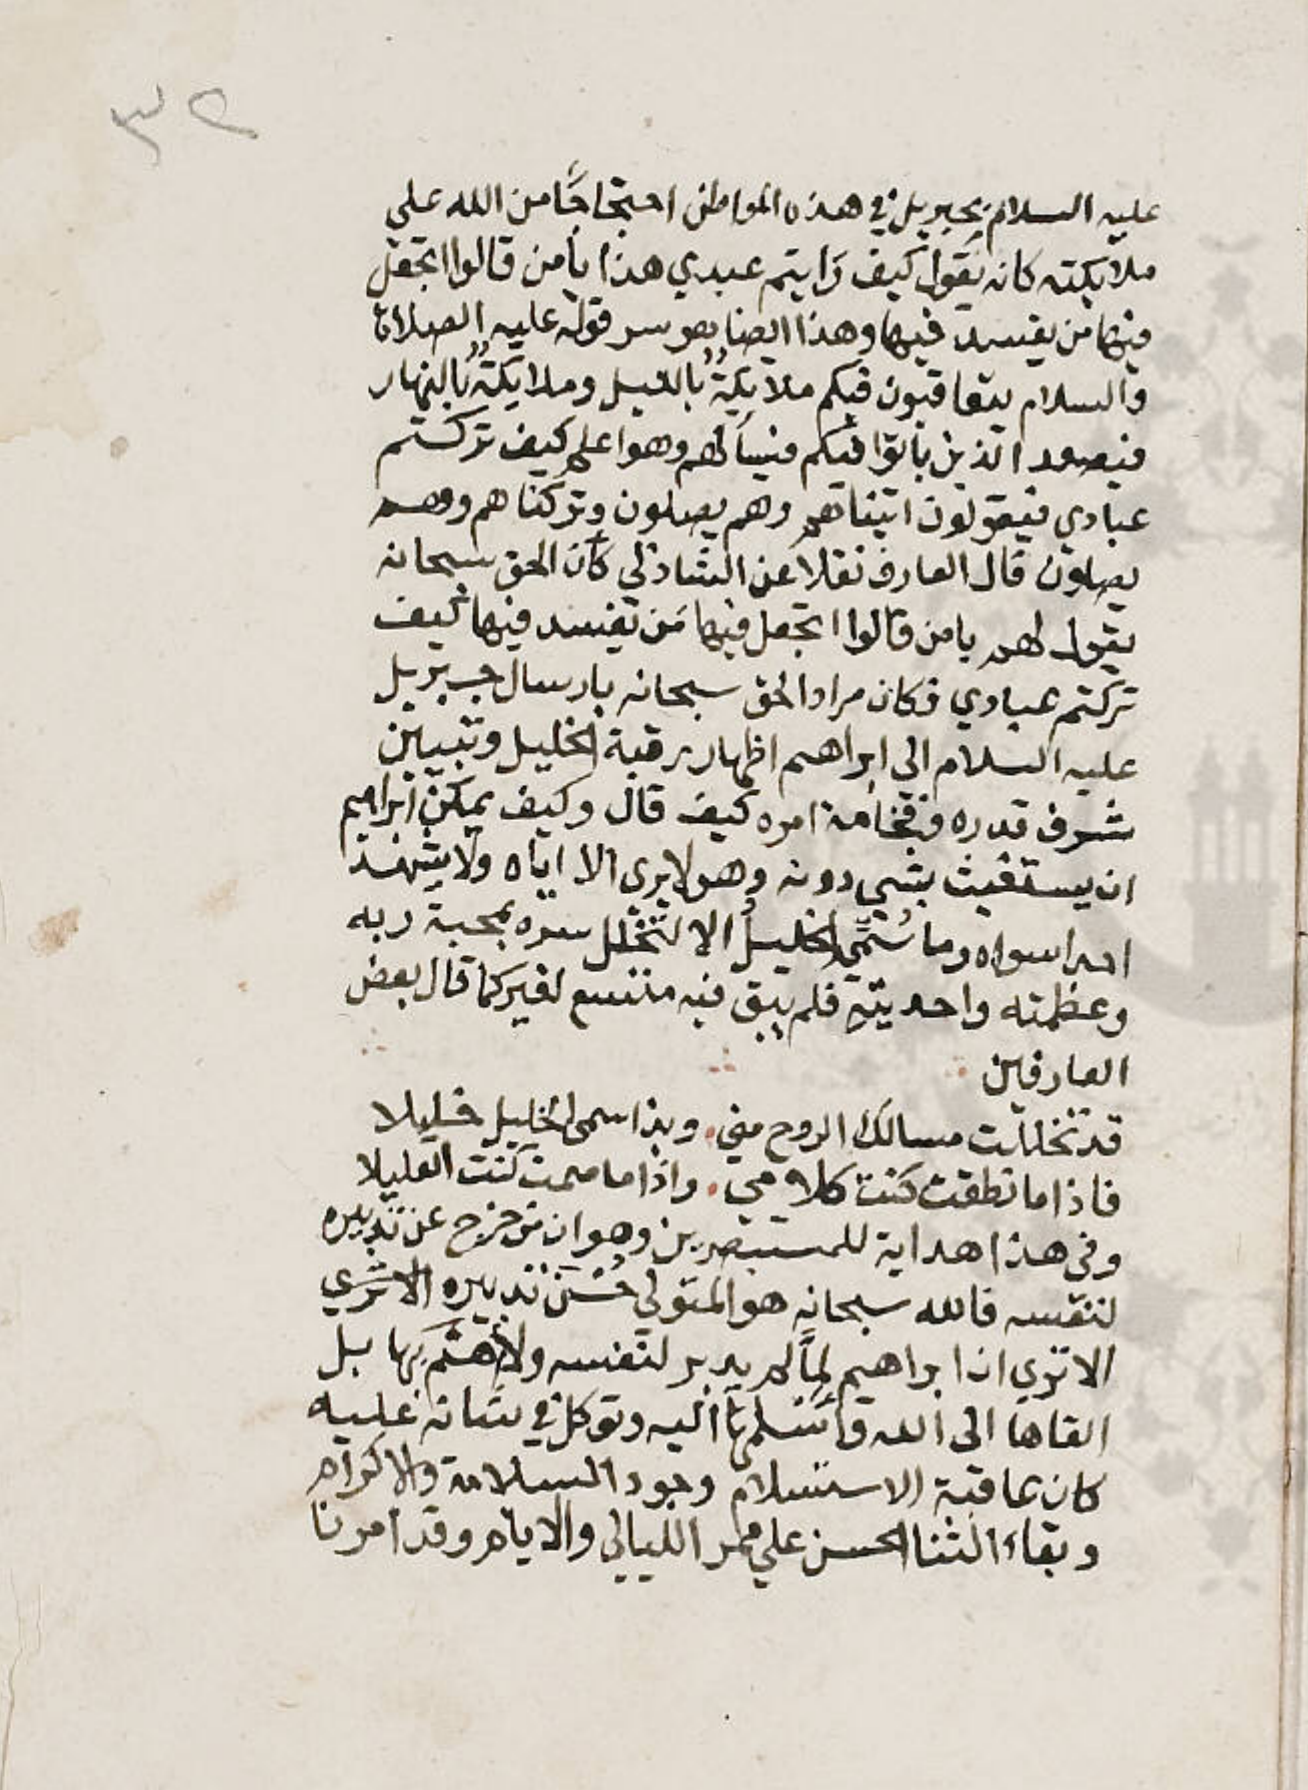 ٣٢
عليه السلام بجبريل في هذه المواطن احتجاجًا من الله علي
ملايكته كانه يَقول كيف رَايتم عبدي هذا يا من قالوا اتجعل
فيها من يفسد فيها وهذا ايضا هو سر قوله عليه الصلاة
والسلام يتعاقبون فيكم ملايكةٌ بالليل وملايكةٌ بالنهار
فيصعد الذين باتوا فيكم فيسألهم وهو اعلم كيف تركتم
عبادي فيقولون اتيناهم وهم يصلون وتركناهم وهم
يصلون قال العارف نقلا عن الشاذلي كأن الحق سبحانه
يقول لهم يا من قالوا اتجعل فيها مَن يفسد فيها كيف
تركتم عبادي فكان مراد الحق سبحانه بارسال جبريل
عليه السلام الي ابراهيم اظهار رقبة الخليل وتبيين
شرف قدره وفخامة امره كيف قال وكيف يمكن ابراهيم
ان يستغيث بشي دونه وهو لا يري الا اياه ولا يشهد
احدا سواه وما سُمّي الخليلُ الا لتخلل سره بمحبة ربه
وعظمته واحديته فلم يبق فيه متسع لغير كما قال بعض
العارفين
قد تخللت مسالك الروح مني . وبذا سمي الخليل خليلا
فاذا ما نطقت كنت كلامي . واذا ما صمت كنت الغليلا
وفي هذا هداية للمستبصرين وهو ان من خرج عن تدبيره
لنفسه فالله سبحانه هو المتولي حُسْنَ تدبيره الا تري
الا تري ان ابراهيم لمَّا لم يدبر لنفسه ولا أهتم بها بل
القاها الى الله وأسْلمها اليه وتوكل في شانه عليه
كان عاقبة الاستسلام وجود السلامة والاكرام
وبقاء الثنا الحسن علي ممر الليالي والايام وقد امرنا